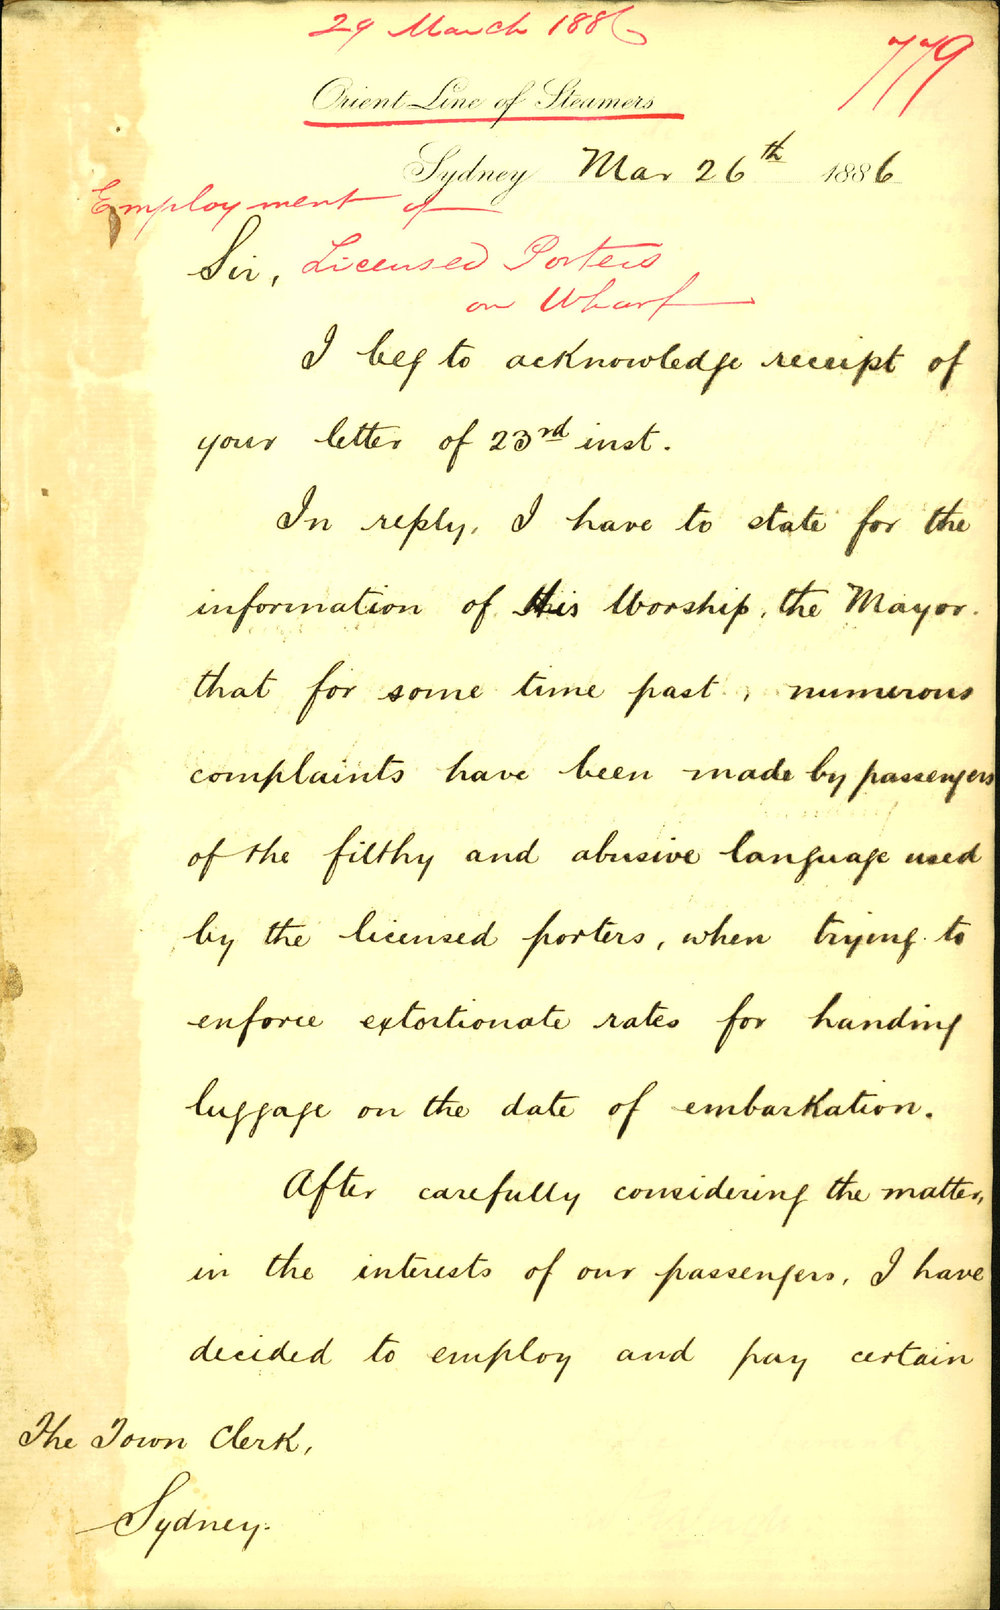 29 March 1886
779
Orient Line of Steamers
Sydney Mar 26th 1886
Employment of
Licensed Porters
on Wharf
Sir,
I beg to acknowledge receipt of
your letter of 23rd inst.
In reply, I have to state for the
information of His Worship, the Mayor.
that for some time past, numerous
complaints have been made by passengers
of the filthy and abusive language used
by the licensed porters, when trying to
enforce extortionate rates for handing
luggage on the date of embarkation.
After carefully considering the matter,
in the interests of our passengers, I have
decided to employ and pay certain
The Town Clerk,
Sydney.